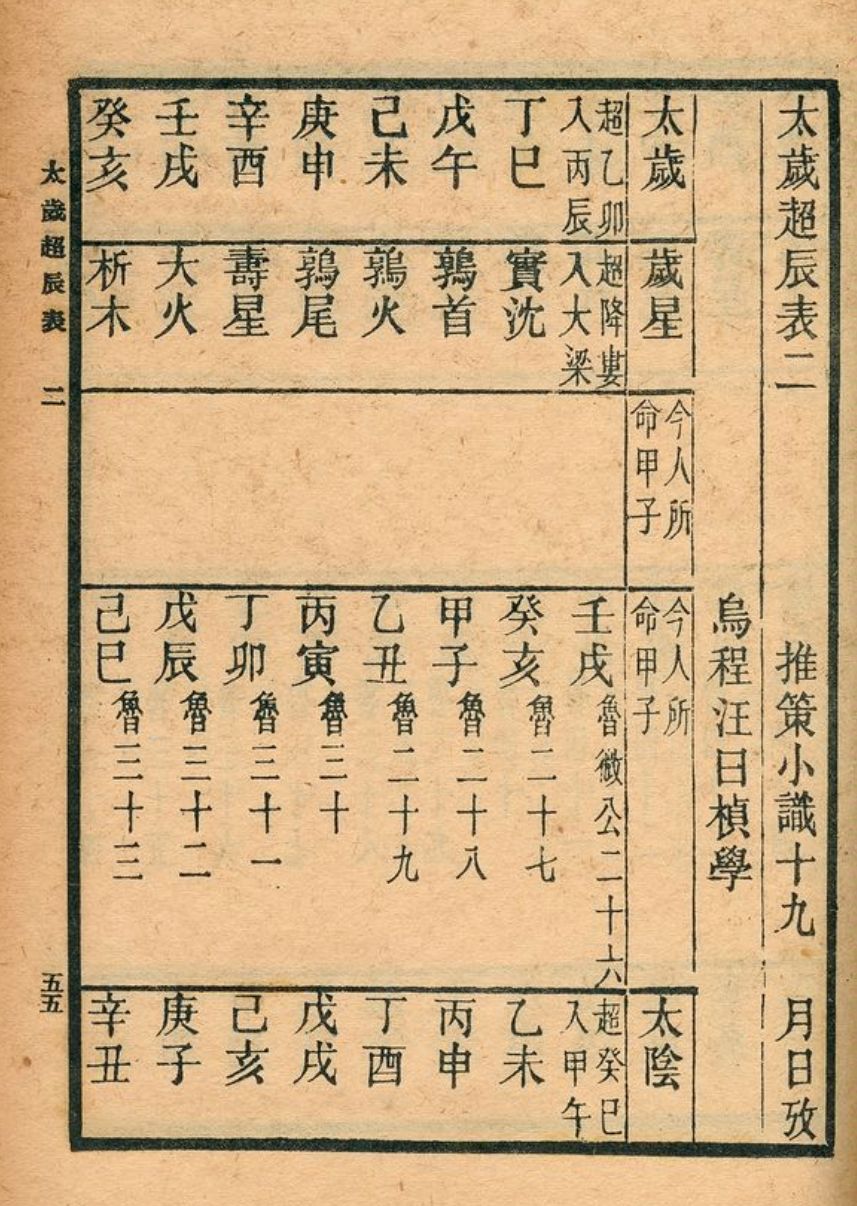 太歲超辰表二　推策小識十九　月日攷
烏程汪曰楨學
太歲
歲星
今人所
命甲子
今人所
命甲子
太陰
超乙卯
入丙辰
超降婁
入大梁
壬戌魯微公二十六
超癸巳
入甲午
丁巳
實沈
癸亥魯二十七
乙未
戊午
鶉首
甲子魯二十八
丙申
己未
鶉火
乙丑魯二十九
丁酉
庚申
鶉尾
丙寅魯三十
戊戌
辛酉
壽星
丁卯魯三十一
己亥
壬戌
大火
戊辰魯三十二
庚子
癸亥
析木
己巳魯三十三
辛丑
太歲超辰表　二
五五